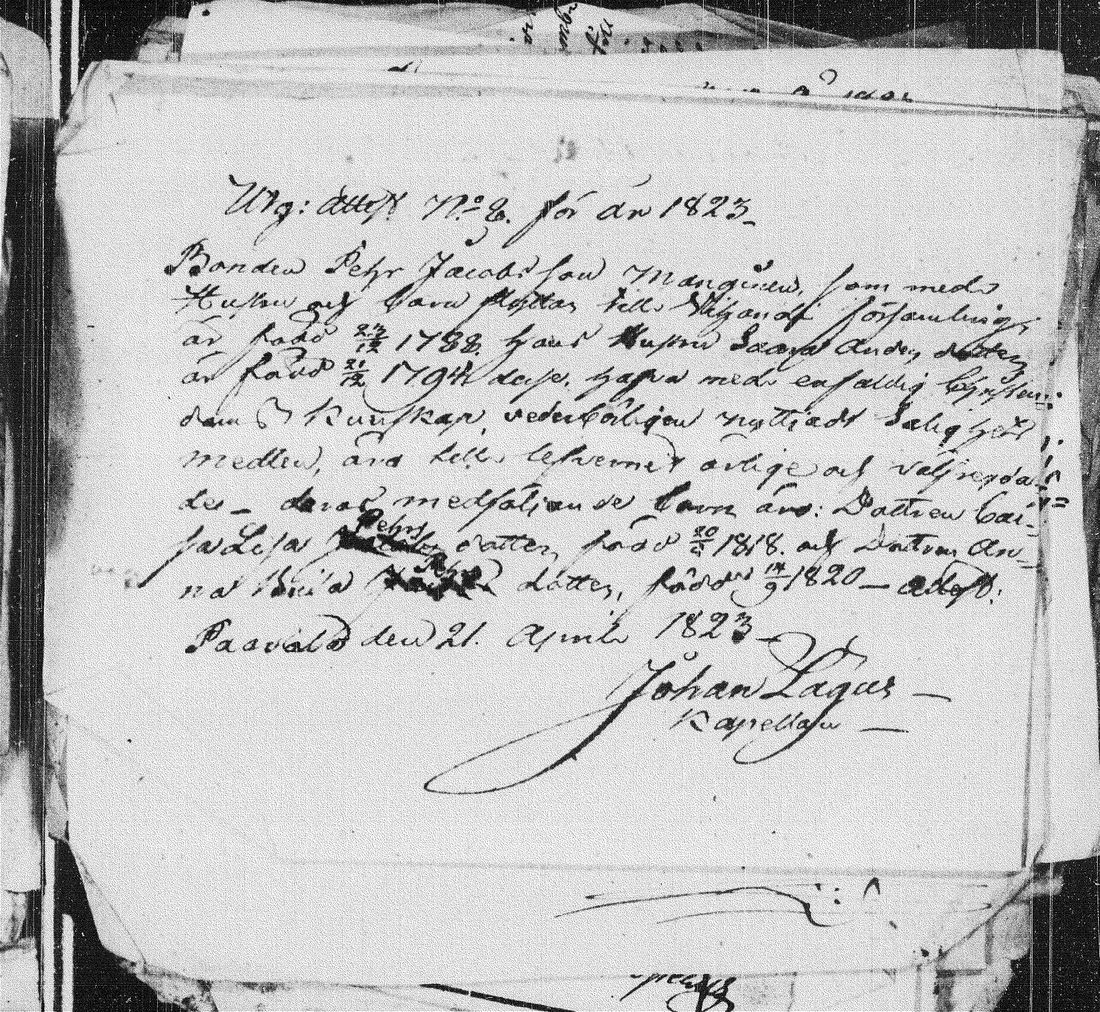 Utg: Attest No 8. för år 1823
Bonden Pehr Jacobsson Manginen, som med
Hustru och barn flyttar till församling,
är född 23/12 1788. Hans Hustru Saara Anders dotter
är född 21/12 1794 dese. Hafva med enfaldig Christen-
doms Kunskap, vederbörligen nyttjadt Salighets
medlen, äro till lefvernet ärlige och välfregda-
de – deras medföljande barn äro: Dottren Cai-
sa Lisa Pehrs dotter, född 20/5 1818. och Dottren An-
na Brita Pehrs dotter, född 14/9 1820 – attest.
Paavola den 21. April 1823 –
Johan Lagus –
Kapellan –